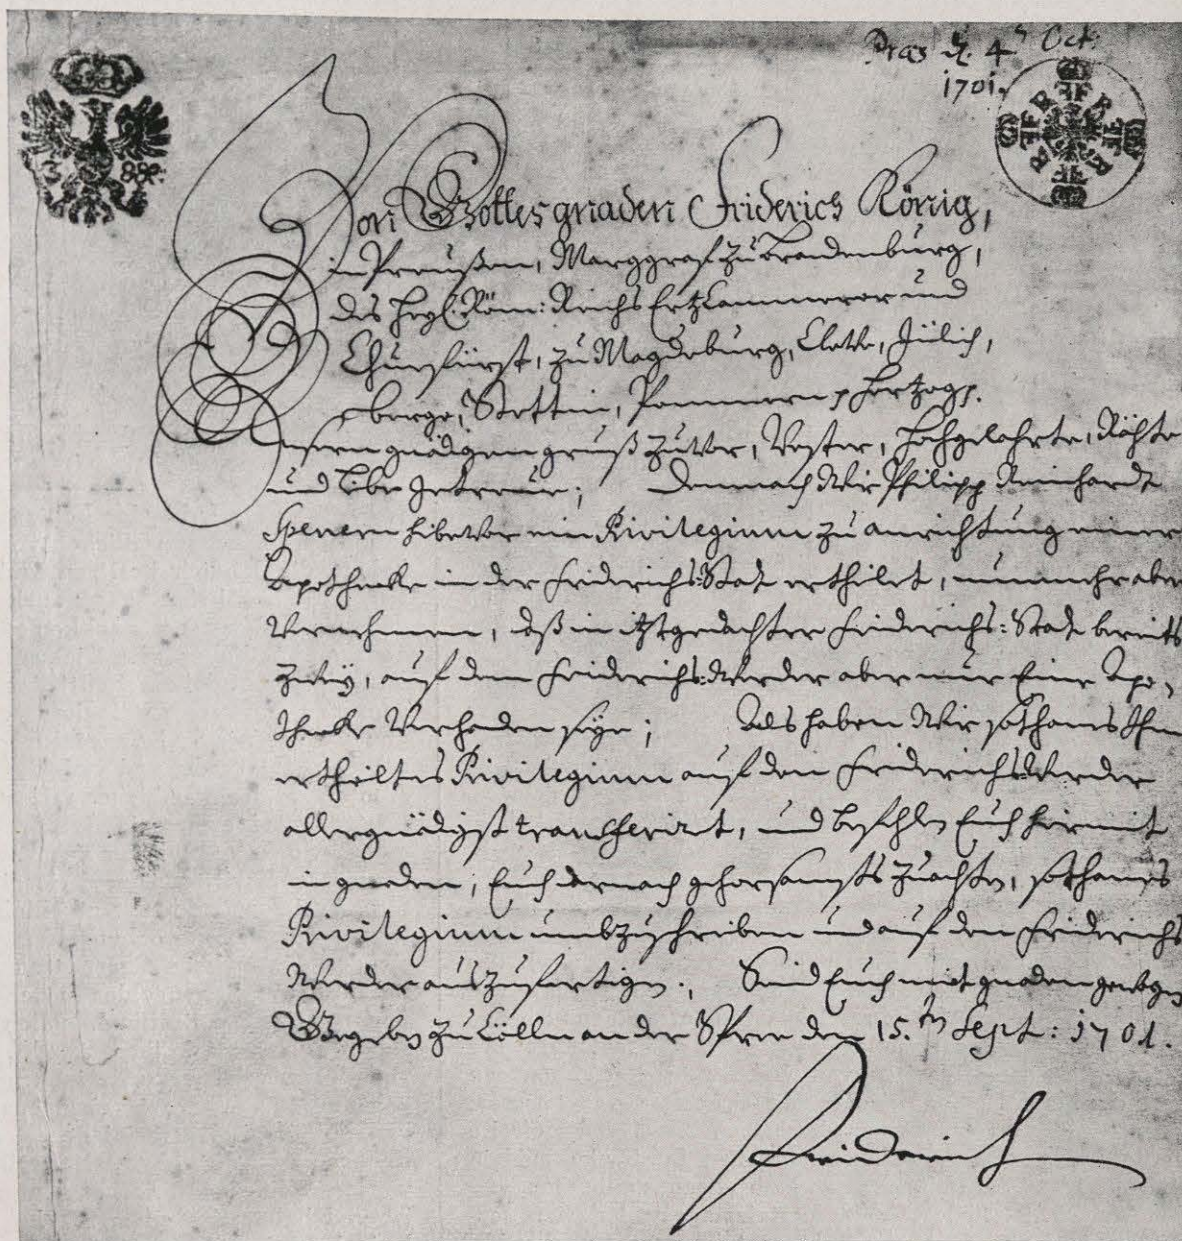 Præs d. 4t Oct:
1701.
Von Gottes gnaden Friderich König,
in Preußen, Marggraf zu Brandenburg,
des Heyl: Röm: Reichs Ertz Cammerer und
Churfürst, zu Magdeburg, Cleve, Jülich,
Berge, Stettin, Pommern p Hertzog p.
Unsern gnädigen gruß zuvor, Vester, Hochgelahrte, Rähte
und liebe getreue; Demnach Wir Philipp Reinhardt
Spenern hibevor ein Privilegium zu anrichtung einer
Apothecke in der Friderichs-Stadt ertheilet, nunmehr aber
vernehmen, daß in itztgedachter Friderichs-Stadt bereits
zwey, auf dem Friderichs-Werder aber nur Eine Apo-
thecke verhanden seye; Als haben Wir sothanes Ihm
ertheiltes Privilegium auf den Friderichs-Werder
allergnädigst transferiret, und befehlen Euch hiermit
in gnaden, Euch darnach gehorsambst zu achten, sothanes
Privilegium umbzuschreiben und auf den Friderichs
Werder auszufertigen. Seind Euch mit gnaden gewogen
Gegeben zu Cölln an der Spree den 15.ten Sept: 1701.
Friderich